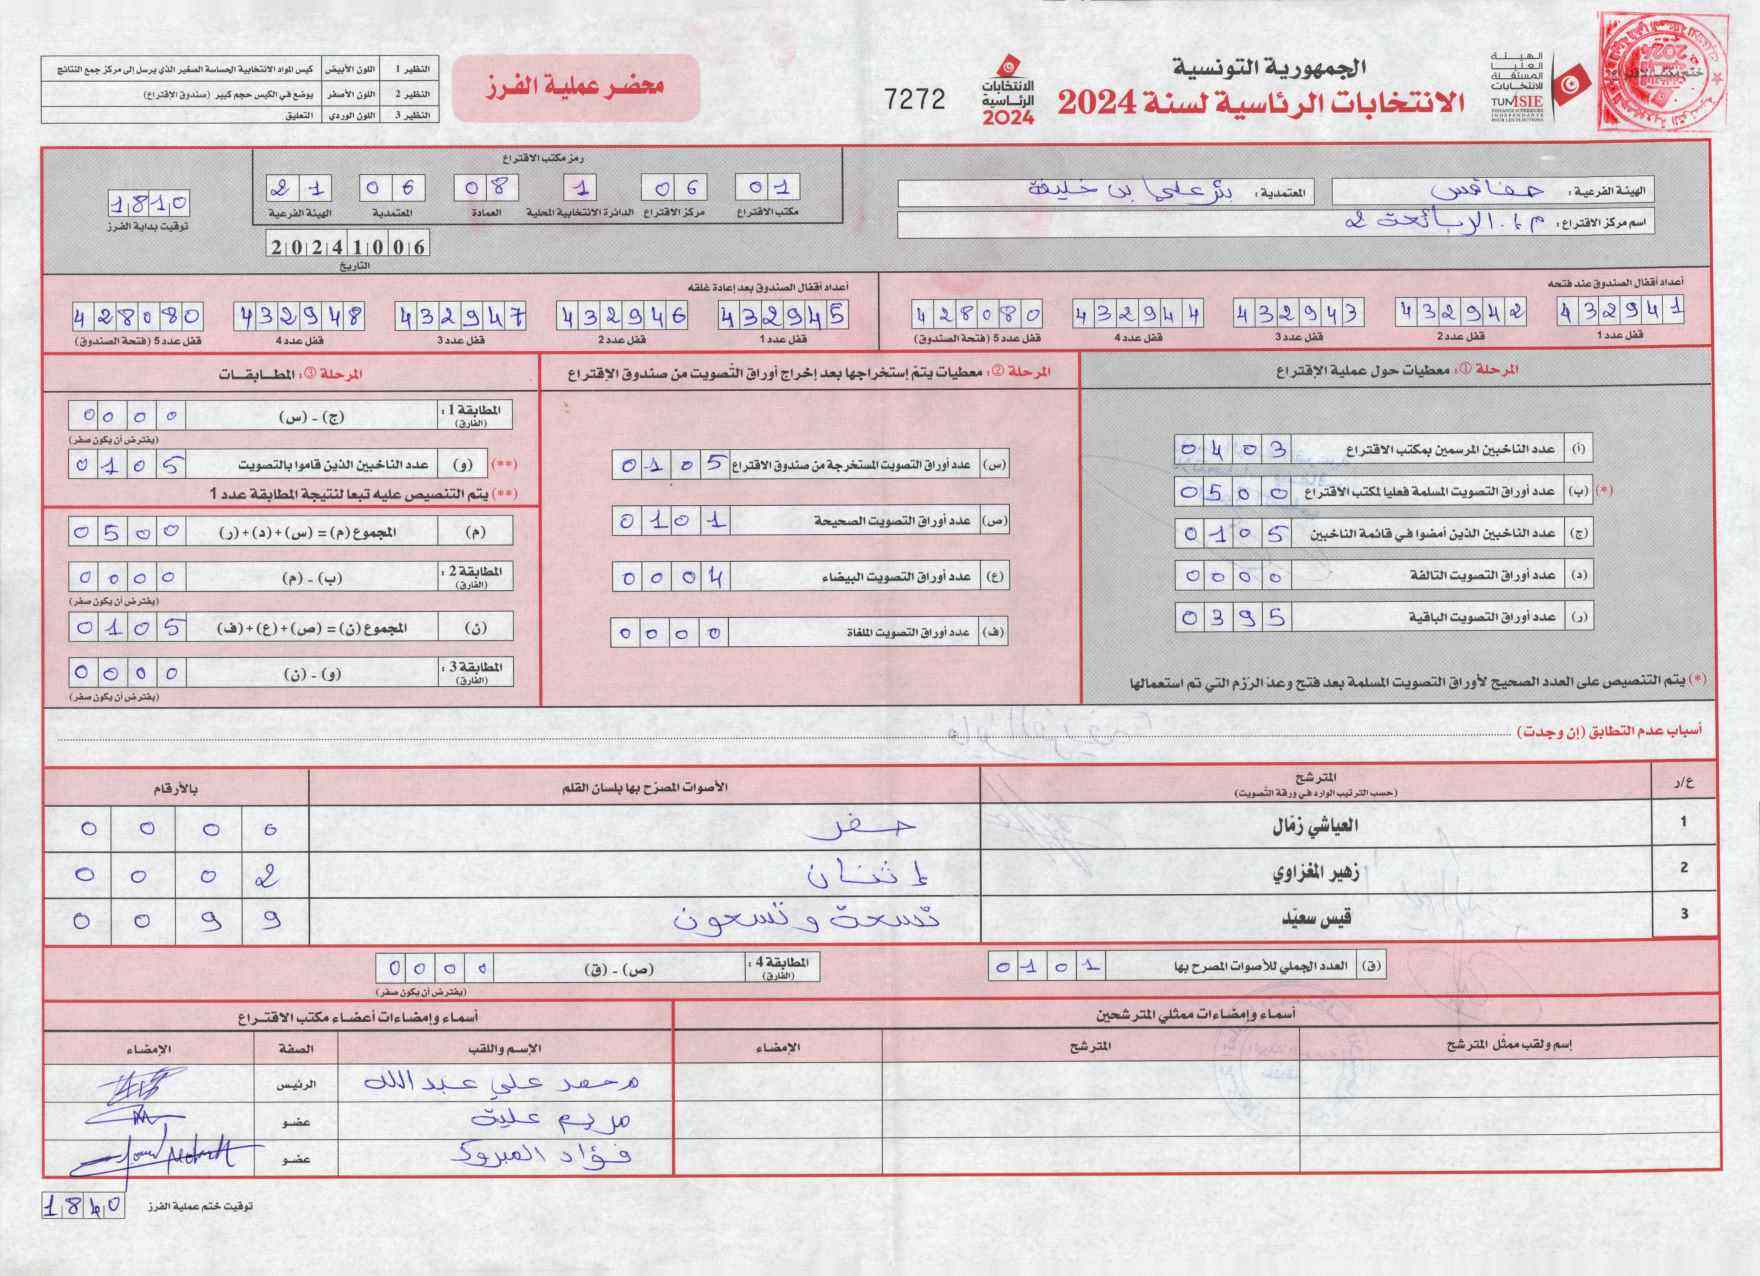 الجمهورية التونسية
الانتخابات الرئاسية لسنة 2024
الهيئة
العليا
المستقلة
للانتخابات
TUNISIE
الانتخابات
الرئاسية
2024
7272
محضر عملية الفرز
النظير 1 اللون الأبيض كيس المواد الانتخابية الحساسة الصغير الذي يرسل إلى مركز جمع النتائج
النظير 2 اللون الأصفر يوضع في الكيس حجم كبير (صندوق الاقتراع)
النظير 3 اللون الوردي التعليق
الهيئة الفرعية : صفاقس
المعتمدية : بئر علي بن خليفة
اسم مركز الاقتراع : م.ا. الربائعة 2
رمز مكتب الاقتراع
01 06 1 08 06 21
مكتب الاقتراع مركز الاقتراع الدائرة الانتخابية المحلية العمادة المعتمدية الهيئة الفرعية
20241006
التاريخ
1810
توقيت بداية الفرز
أعداد أقفال الصندوق عند فتحه
432941 432942 432943 432944 428080
قفل عدد 1 قفل عدد 2 قفل عدد 3 قفل عدد 4 قفل عدد 5 (فتحة الصندوق)
أعداد أقفال الصندوق بعد إعادة غلقه
432945 432946 432947 432948 428080
قفل عدد 1 قفل عدد 2 قفل عدد 3 قفل عدد 4 قفل عدد 5 (فتحة الصندوق)
المرحلة ① : معطيات حول عملية الإقتراع
(أ) عدد الناخبين المرسمين بمكتب الاقتراع 0403
(*) (ب) عدد أوراق التصويت المسلمة فعليا لمكتب الاقتراع 0500
(ج) عدد الناخبين الذين أمضوا في قائمة الناخبين 0105
(د) عدد أوراق التصويت التالفة 0000
(ر) عدد أوراق التصويت الباقية 0395
(*) يتم التنصيص على العدد الصحيح لأوراق التصويت المسلمة بعد فتح وعد الرزم التي تم استعمالها
المرحلة ② : معطيات يتم إستخراجها بعد إخراج أوراق التصويت من صندوق الإقتراع
(س) عدد أوراق التصويت المستخرجة من صندوق الاقتراع 0105
(ص) عدد أوراق التصويت الصحيحة 0101
(ع) عدد أوراق التصويت البيضاء 0004
(ف) عدد أوراق التصويت الملغاة 0000
المرحلة ③ : المطابقات
المطابقة 1 : (الفارق) (ج) - (س) 0000
(يفترض أن يكون صفر)
(**) (و) عدد الناخبين الذين قاموا بالتصويت 0105
(**) يتم التنصيص عليه تبعا لنتيجة المطابقة عدد 1
(م) المجموع (م) = (س)+(د)+(ر) 0500
المطابقة 2 : (الفارق) (ب) - (م) 0000
(يفترض أن يكون صفر)
(ن) المجموع (ن) = (ص)+(ع)+(ف) 0105
المطابقة 3 : (الفارق) (و) - (ن) 0000
(يفترض أن يكون صفر)
أسباب عدم التطابق (إن وجدت)
ع/ر المترشح الأصوات المصرح بها بلسان القلم بالأرقام
(حسب الترتيب الوارد في ورقة التصويت)
1 العياشي زمّال صفر 0000
2 زهير المغزاوي إثنان 0002
3 قيس سعيّد تسعة وتسعون 0099
(ق) العدد الجملي للأصوات المصرح بها 0101
المطابقة 4 : (الفارق) (ص) - (ق) 0000
(يفترض أن يكون صفر)
أسماء وإمضاءات ممثلي المترشحين
إسم ولقب ممثل المترشح المترشح الإمضاء
أسماء وإمضاءات أعضاء مكتب الاقتراع
الإسم واللقب الصفة الإمضاء
محمد علي عبدالله الرئيس
مريم علية عضو
فؤاد المبروك عضو
توقيت ختم عملية الفرز 1840